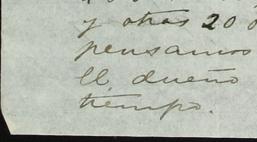 y otras 20 o
pensamos
el dueño
tiempo.